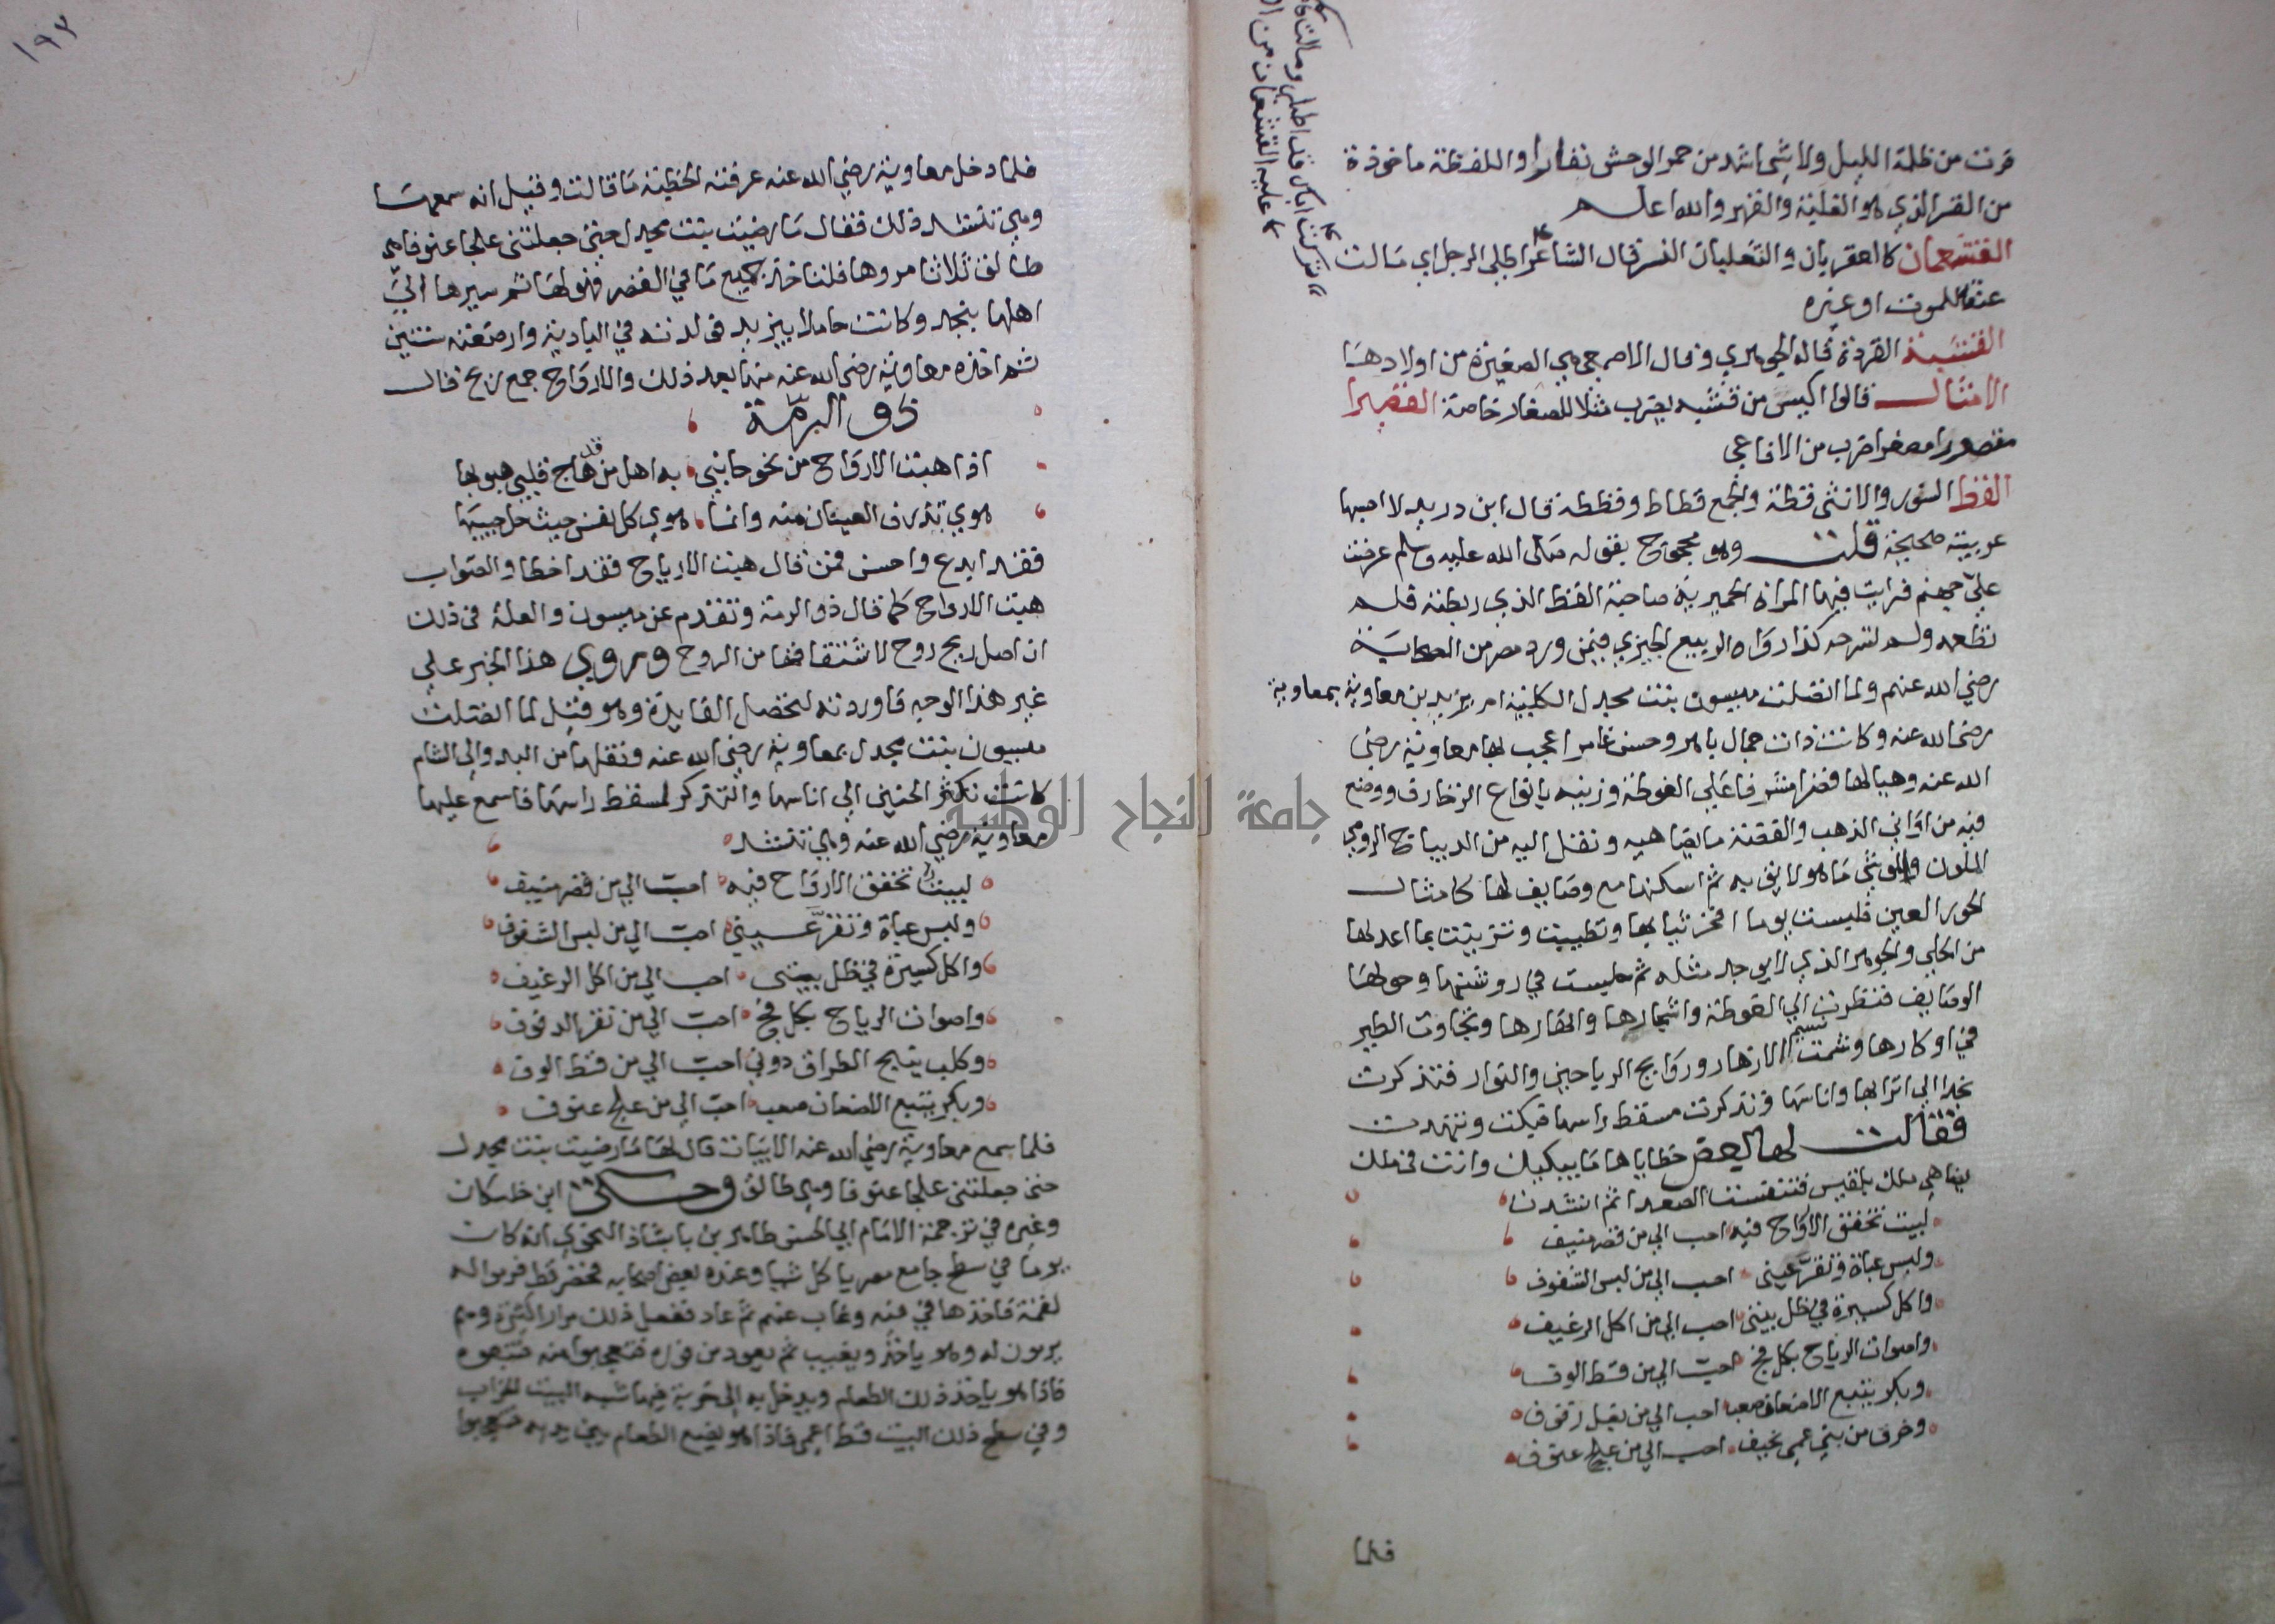 فرت من ظلمة الليل ولا شي اشد من حمر الوحش نفارا واللفظة ماخوذة
من القسر الذي هو الغلبة والقهر والله اعلم
القشعمان كالعقربان والثعلبان النسر قال الشاعر اطلى الرجل اي مالت
عنقه للموت او غيره
تركت اباك قد اطلى ومالت
عليه القشعمان من
القشبة القردة قاله الجوهري وقال الاصمعي هي الصغيرة من اولادها
الامثال قالوا اكيس من قشبه يضرب مثلا للصغار خاصة القصيرا
مقصورا مصغرا ضرب من الافاعي
القط السنور والانثى قطة والجمع قطاط وقططة قال ابن دريد لا احسبها
عربية صحيحة قلت وهو محجوج بقوله صلى الله عليه وسلم عرضت
علي جهنم فرايت فيها المراة الحميرية صاحبة القط الذي ربطته فلم
تطعمه ولم تسرحه كذا رواه الربيع الجيزي فيمن ورد مصر من الصحابة
رضي الله عنهم ولما اتصلت ميسون بنت مجدل الكلبية ام يزيد بن معاوية بمعاوية
رضي الله عنه وكانت ذات جمال باهر وحسن غامر اعجب بها معاوية رضي
الله عنه وهيا لها قصرا مشرفا على الغوطة وزينه بانواع الزخارف ووضع
فيه من اواني الذهب والفضة ما يضاهيه ونقل اليه من الديباج الرومي
الملون والموشي ما هو لايق به ثم اسكنها مع وصايف لها كامثال
الحور العين فلبست يوما افخر ثيابها وتطيبت وتزينت بما اعد لها
من الحلي والجوهر الذي لا يوجد مثله ثم جلست في روشنها وحولها
الوصايف فنظرت الي الغوطة واشجارها وانهارها وتجاوب الطير
في اوكارها وشمت نسيم الازهار وروايح الرياحين والنوار فتذكرت
نجدا الي اترابها واناسها وتذكرت مسقط راسها فبكت وتنهدت
فقالت لها بعض حظاياها ما يبكيك وانت في ملك
يضاهي ملك بلقيس فتنفست الصعدا ثم انشدت
لبيت تخفق الارواح فيه احب الي من قصر منيف
ولبس عباة وتقر عيني احب الي من لبس الشفوف
واكل كسيرة في ظل بيتي احب الي من اكل الرغيف
واصوات الرياح بكل فج احب الي من قط الوف
وبكر يتبع الاضعان صعبا احب الي من بغل زفوف
وخرق من بني عمي نحيف احب الي من علج عنوف
فلما
١٩٢
فلما دخل معاوية رضي الله عنه عرفته الحظية ما قالت وقيل انه سمعها
وهي تنشد ذلك فقال ما رضيت بنت مجدل حتى جعلتني علجا عنوفا هي
طالق ثلاثا مروها فلتاخذ جميع ما في القصر فهو لها ثم سيرها الي
اهلها بنجد وكانت حاملا بيزيد فولدته في البادية وارضعته سنتين
ثم اخذه معاوية رضي الله عنه منها بعد ذلك والارواح جمع ريح قال
ذو الرمة
اذا هبت الارواح من نحو جانب به اهل مي هاج قلبي هبوبها
هوي تذرف العينان منه وانما هوي كل نفس حيث حل حبيبها
فقد ابدع واحسن فمن قال هبت الارياح فقد اخطا والصواب
هبت الارواح كما قال ذو الرمة وتقدم عن ميسون والعلة في ذلك
ان اصل ريح روح لاشتقاقها من الروح وروي هذا الخبر علي
غير هذا الوجه فاوردته لتحصل الفايدة وهو قيل لما اتصلت
ميسون بنت مجدل بمعاوية رضي الله عنه ونقلها من البدو الي الشام
كانت تكثر الحنين الي اناسها والتذكر لمسقط راسها فاسمع عليها
معاوية رضي الله عنه وهي تنشد
لبيت تخفق الارواح فيه احب الي من قصر منيف
ولبس عباة وتقر عيني احب الي من لبس الشفوف
واكل كسيرة في ظل بيتى احب الي من اكل الرغيف
واصوات الرياح بكل فج احب الي من نقر الدفوف
وكلب ينبح الطراق دوني احب الي من قط الوف
وبكر يتبع الاضعان صعب احب الي من علج عنوف
فلما سمع معاوية رضي الله عنه الابيات قال لها ما رضيت بنت مجدل
حتى جعلتني علجا عنوفا وهي طالق وحكى ابن خلكان
وغيره في ترجمة الامام ابي الحسن طاهر بن بابشاذ النحوي انه كان
يوما في سطح جامع مصر ياكل شيا وعنده بعض اصحابه فحضر قط فرموا له
لقمة فاخذها في فيه وغاب عنهم ثم عاد ففعل ذلك مرارا كثيرة وهم
يرمون له وهو ياخذ ويغيب ثم يعود من فوره فتعجبوا منه فتبعوه
فاذا هو ياخذ ذلك الطعام ويدخل به الى خربة فيها شبه البيت الخراب
وفي سطح ذلك البيت قط اعمي فاذا هو يضع الطعام بين يديه فتعجبوا
جامعة النجاح الوطنية